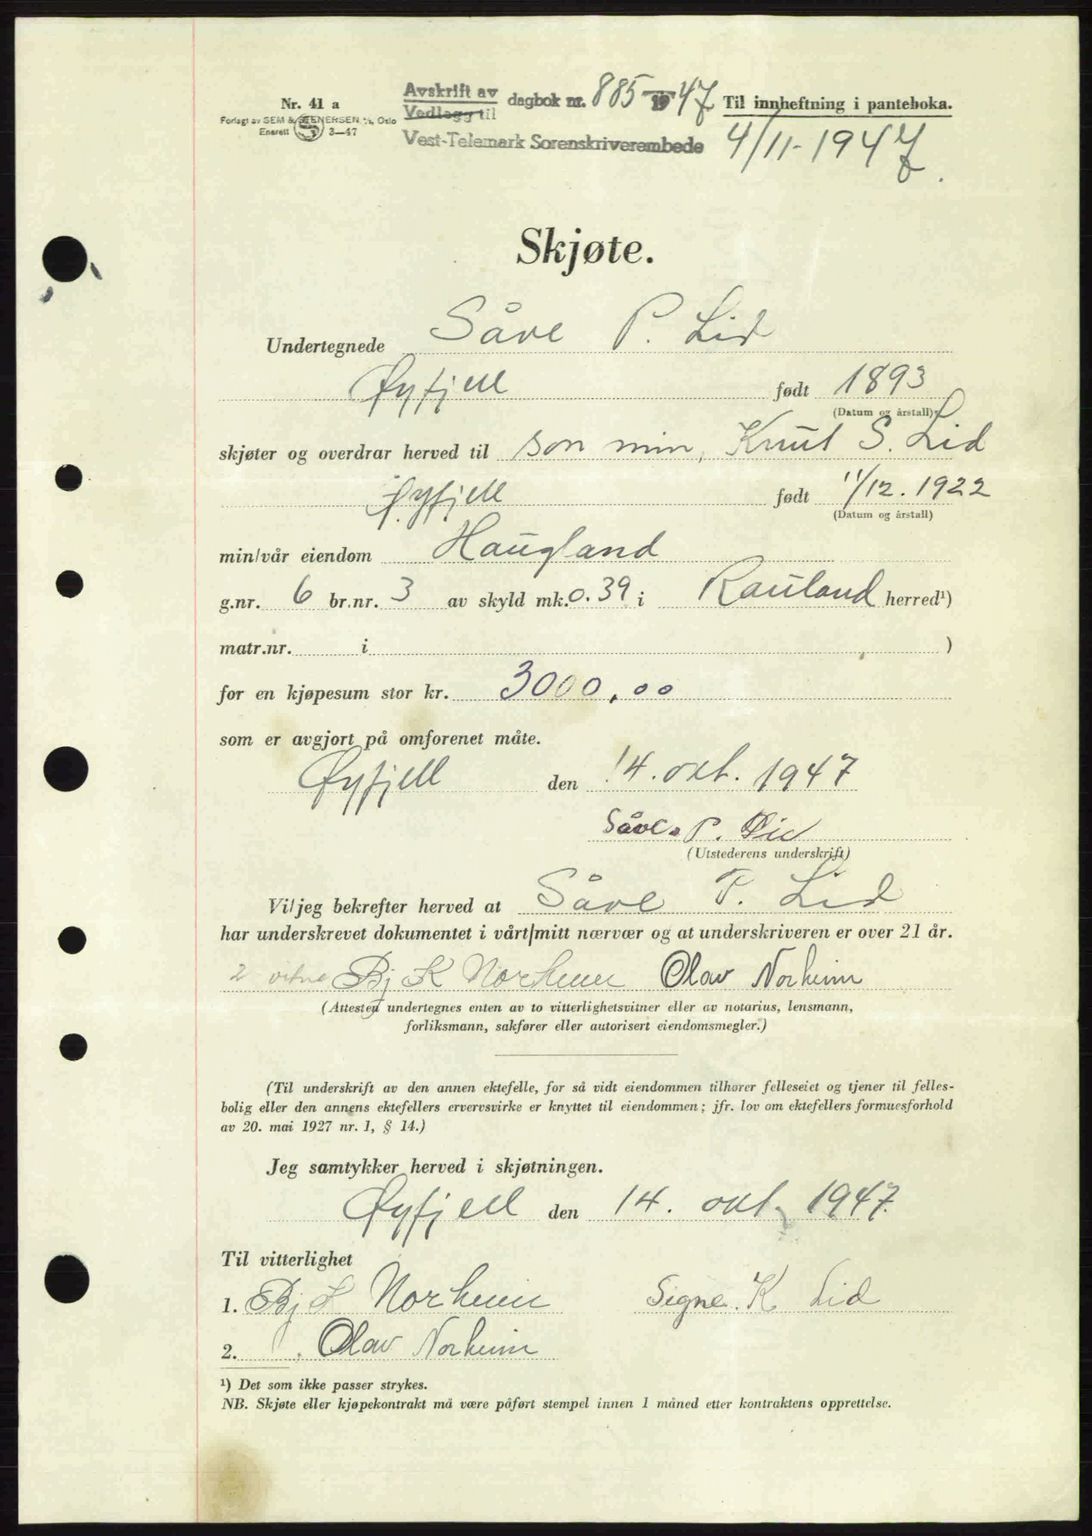 Nr. 41 a
Forlagt av SEM & STENERSEN A/S, Oslo
Enerett 3—47
Avskrift av
Vedlegg til
dagbok nr. 885 1947 Til innheftning i panteboka.
Vest-Telemark Sorenskriverembede 4/11-1947.
Skjøte.
Undertegnede Såve P. Lid
Øyfjell født 1893
(Datum og årstall)
skjøter og overdrar herved til son min, Knut S. Lid
Øyfjell født 11/12. 1922
(Datum og årstall)
min/vår eiendom Haugland
g.nr. 6 br.nr. 3 av skyld mk. 0.39 i Rauland herred¹)
matr.nr. i )
for en kjøpesum stor kr. 3000,00
som er avgjort på omforenet måte.
Øyfjell den 14. okt. 1947
Såve P. Lid
(Utstederens underskrift)
Vi/jeg bekrefter herved at Såve P. Lid
har underskrevet dokumentet i vårt/mitt nærvær og at underskriveren er over 21 år.
2 vitne Bj K Norheim Olav Norheim
(Attesten undertegnes enten av to vitterlighetsvitner eller av notarius, lensmann,
forliksmann, sakfører eller autorisert eiendomsmegler.)
(Til underskrift av den annen ektefelle, for så vidt eiendommen tilhører felleseiet og tjener til felles-
bolig eller den annens ektefellers ervervsvirke er knyttet til eiendommen; jfr. lov om ektefellers formuesforhold
av 20. mai 1927 nr. 1, § 14.)
Jeg samtykker herved i skjøtningen.
Øyfjell den 14. okt. 1947.
Til vitterlighet
1. Bj K Norheim Signe K Lid
2. Olav Norheim
¹) Det som ikke passer strykes.
NB. Skjøte eller kjøpekontrakt må være påført stempel innen 1 måned etter kontraktens opprettelse.